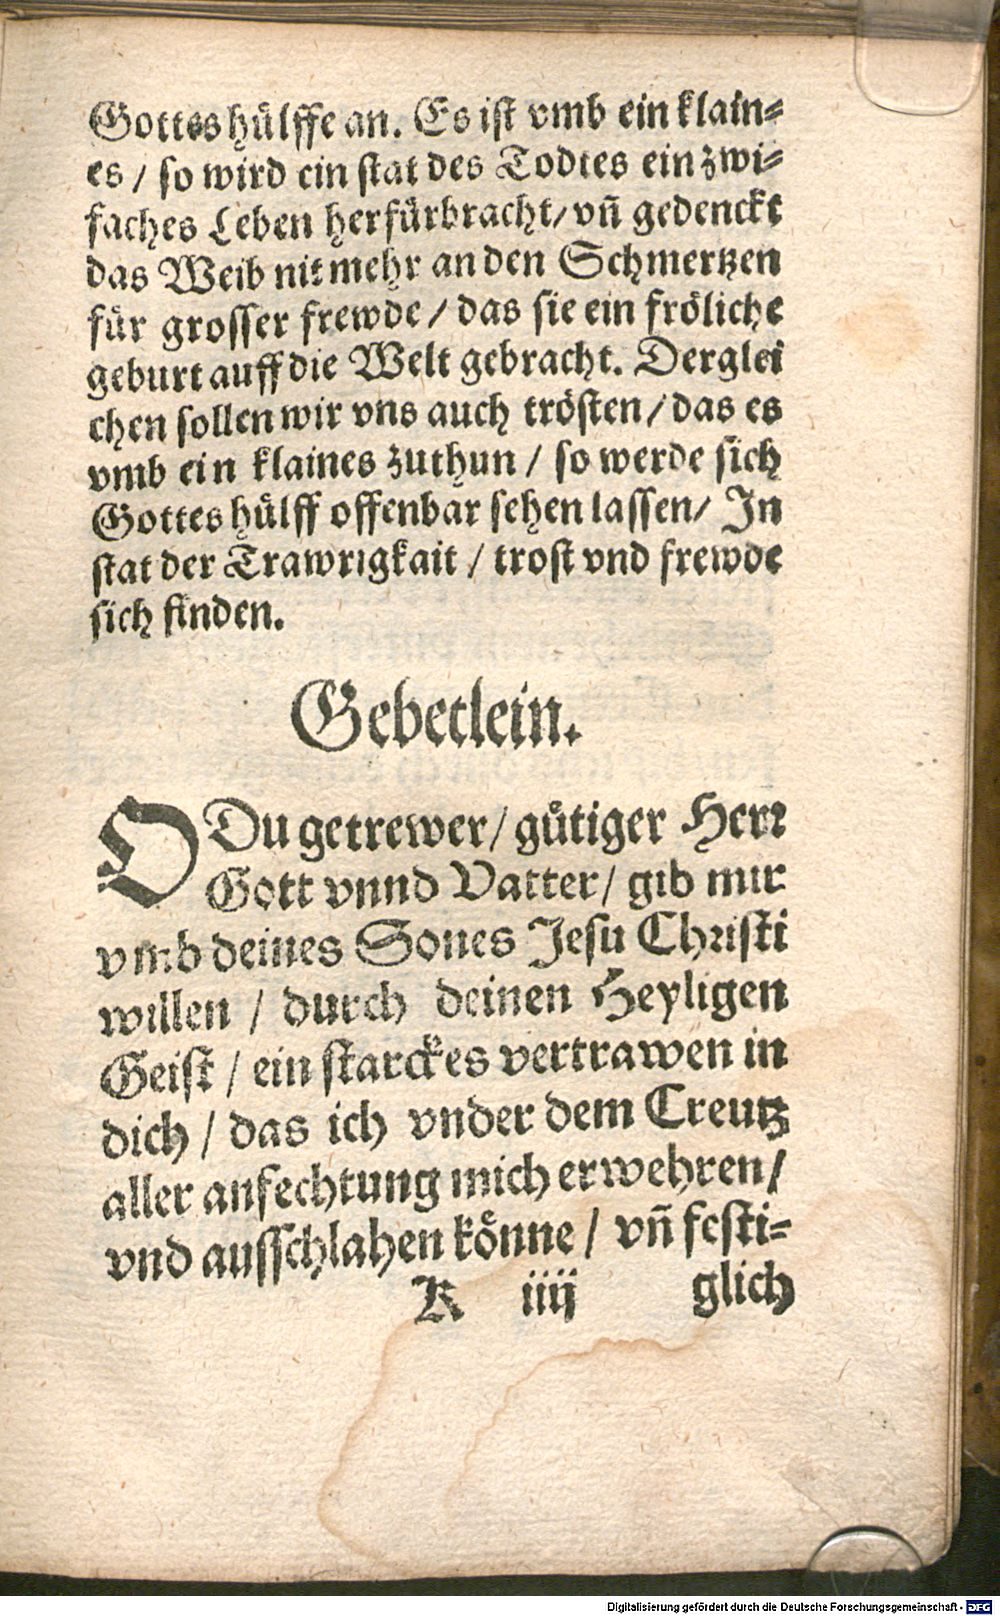 Gottes hülffe an. Es ist vmb ein klain-
es / so wird ein stat des Todtes ein zwi-
faches Leben herfürbracht / vñ gedenckt
das Weib nit mehr an den Schmertzen
für grosser frewde / das sie ein fröliche
geburt auff die Welt gebracht. Derglei
chen sollen wir vns auch trösten / das es
vmb ein klaines zuthun / so werde sich
Gottes hülff offenbar sehen lassen / In
stat der Trawrigkait / trost vnd frewde
sich finden.
Gebetlein.
O Du getrewer / gütiger Herr
Gott vnnd Vatter / gib mir
vmb deines Sones Jesu Christi
willen / durch deinen Heyligen
Geist / ein starckes vertrawen in
dich / das ich vnder dem Creutz
aller anfechtung mich erwehren /
vnd ausschlahen könne / vñ festi-
K iiij glich
Digitalisierung gefördert durch die Deutsche Forschungsgemeinschaft - DFG